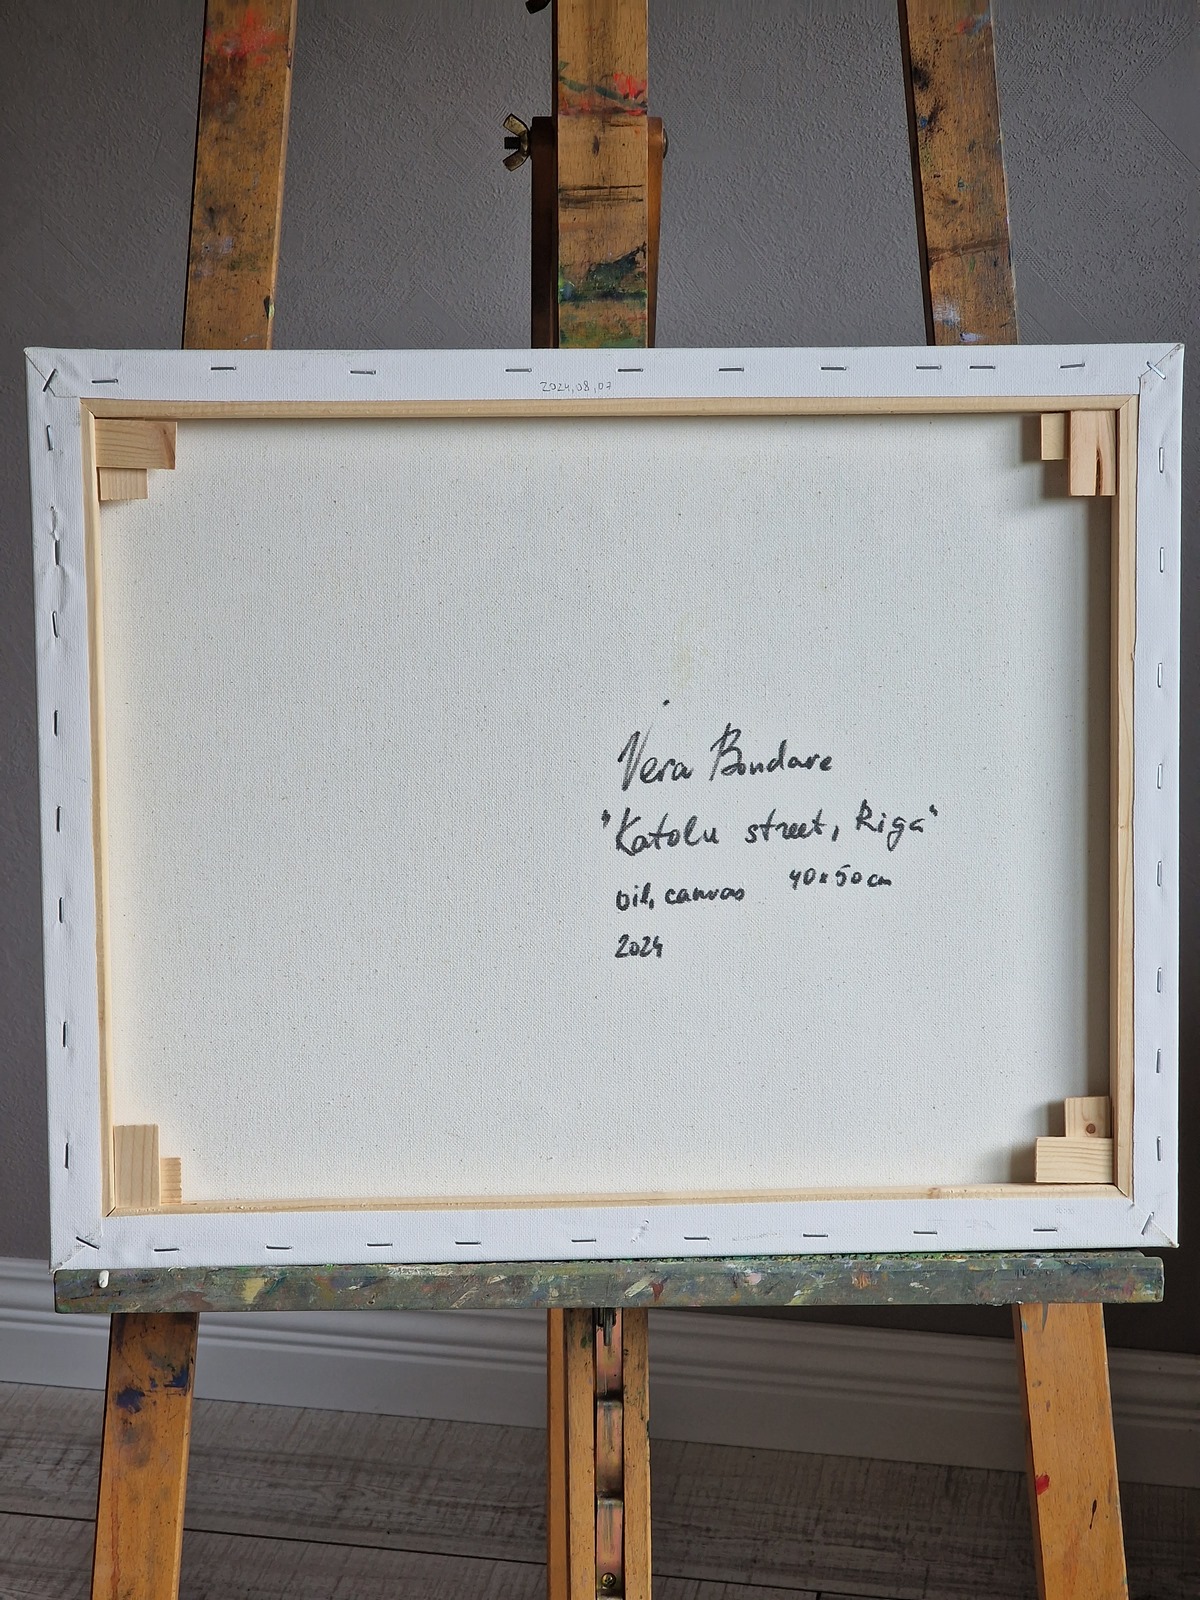 2024,08,07
Vera Bondare
"Katolu street, Riga"
oil, canvas 40x50cm
2024